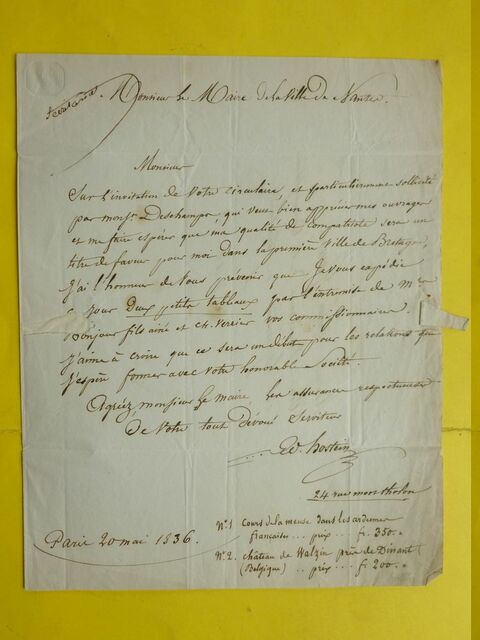 Secrétariat
Monsieur Le Maire de la Ville de Nantes.
Monsieur
Sur l'invitation de votre circulaire, et particulièrement sollicité
par monsr Deschamps, qui veut bien apprécier mes ouvrages
et me faire espérer que ma qualité de compatriote sera un
titre de faveur pour moi dans la première ville de Bretagne,
j'ai l'honneur de vous prévenir que je vous expédie
jour deux petits tableaux par l'entremise de Mrs
Bonjour fils ainé et vos commissionnaires.
J'aime à croire que ce sera un début pour les relations que
j'espère former avec votre honorable Société.
Agréez, monsieur le maire, les assurances respectueuses
de votre tout dévoué Serviteur
Ed. hostein
24 rue montholon
Paris 20 mai 1836.
No. 1 Cours de la meuse dans les ardennes
françaises ... prix ... fr. 350.
No. 2. château de Walzin près de Dinant
(Belgique) ... prix ... fr. 200.